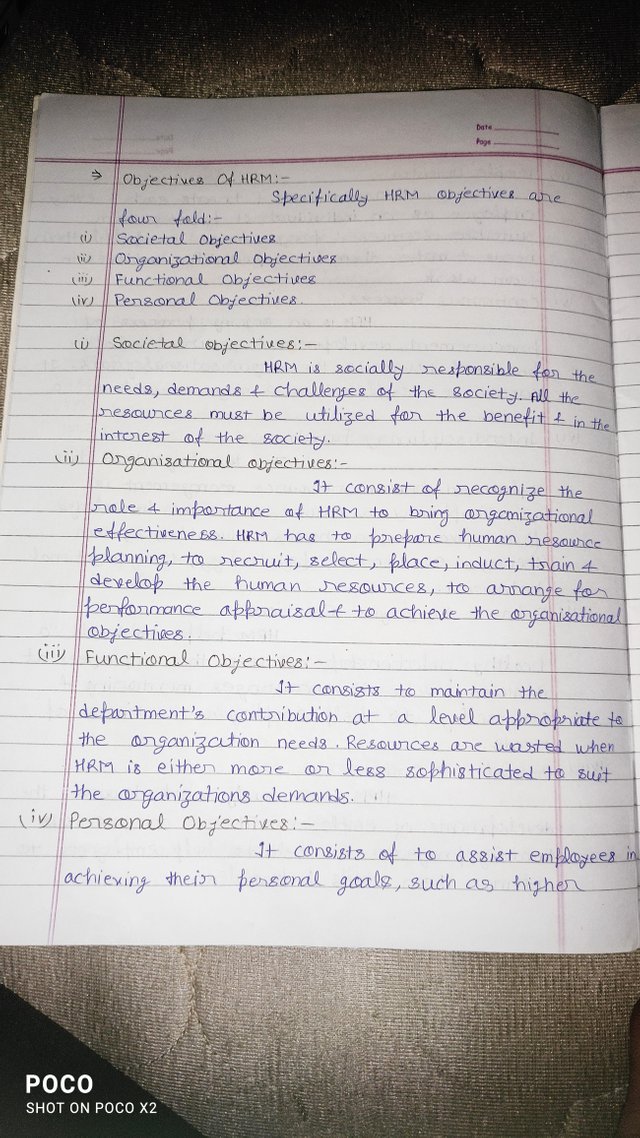 Date
Page
⇒ Objectives Of HRM:-
Specifically HRM objectives are
four fold:-
(i) Societal Objectives
(ii) Organizational Objectives
(iii) Functional Objectives
(iv) Personal Objectives
(i) Societal objectives:-
HRM is socially responsible for the
needs, demands & challenges of the society. All the
resources must be utilized for the benefit & in the
interest of the society.
(ii) Organisational objectives:-
It consist of recognize the
role & importance of HRM to bring organizational
effectiveness. HRM has to prepare human resource
planning, to recruit, select, place, induct, train &
develop the human resources, to arrange for
performance appraisal & to achieve the organisational
objectives.
(iii) Functional Objectives:-
It consists to maintain the
department's contribution at a level appropriate to
the organization needs. Resources are wasted when
HRM is either more or less sophisticated to suit
the organizations demands.
(iv) Personal Objectives:-
It consists of to assist employees in
achieving their personal goals, such as higher
POCO
SHOT ON POCO X2